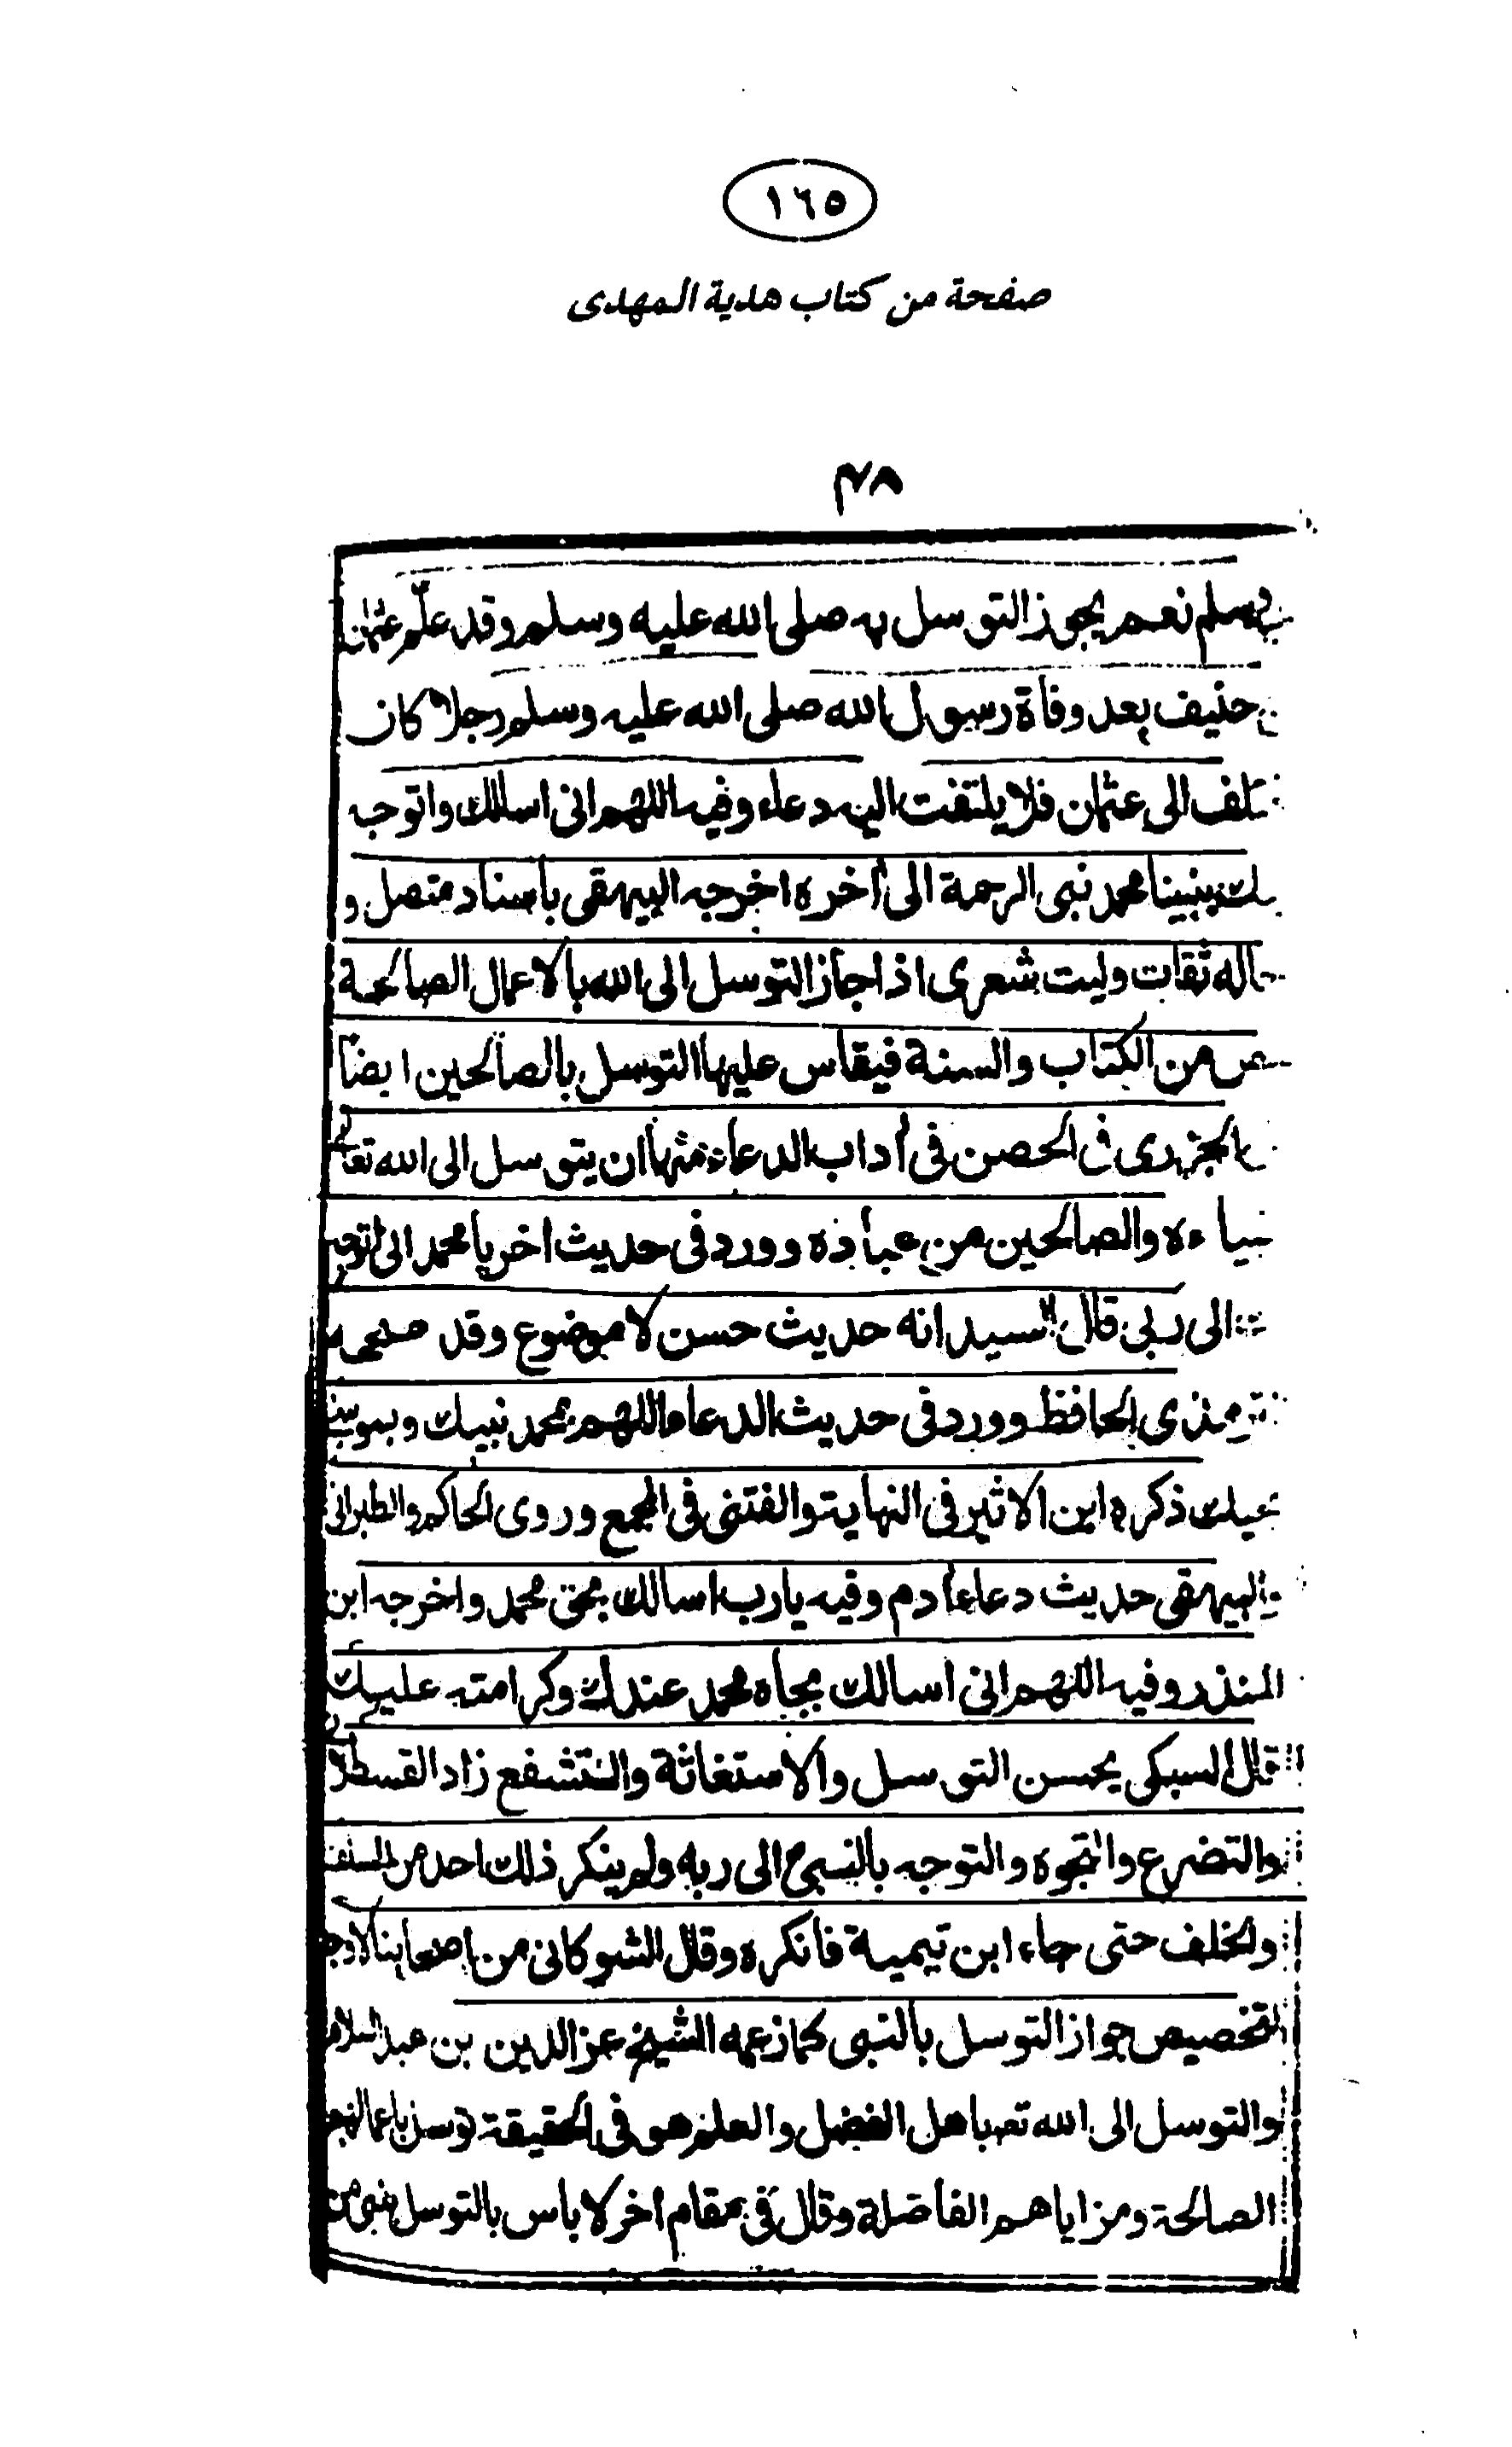 ١٦٥
صفحة من كتاب هدية المهدى
٤٨
نعم يجوز التوسل به صلى الله عليه وسلم وقد علّم عثمان
حنيف بعد وفاة رسول الله صلى الله عليه وسلم رجلا كان
الى عثمان فلا يلتفت اليه دعاء وفيه اللهم انى اسالك واتوجه
بنبينا محمد نبى الرحمة الى اخره اخرجه البيهقى باسناد متصل و
ثقات وليت شعرى اذا جاز التوسل الى الله بالاعمال الصالحة
من الكتاب والسنة فيقاس عليها التوسل بالصالحين ايضا
الجزرى فى الحصن فى اداب الدعاء منها ان يتوسل الى الله تعالى
والصالحين من عباده وورد فى حديث اخر يا محمد انى اتوجه
الى ربى قال السيد انه حديث حسن لا موضوع وقد
الحافظ وورد فى حديث الدعاء اللهم بمحمد نبيك و
ذكره ابن الاثير فى النهاية والفتنى فى المجمع وروى الحاكم والطبرانى
والبيهقى حديث دعاء ادم وفيه يارب اسالك بحق محمد واخرجه ابن
المنذر وفيه اللهم انى اسالك بجاه محمد عندك وكرامته عليك
قال السبكى يحسن التوسل والاستغاثة والتشفع زاد القسطلانى
والتضرع والتجوه والتوجه بالنبى الى ربه ولم ينكر ذلك احد من السلف
والخلف حتى جاء ابن تيمية فانكره وقال الشوكانى من اصحابنا لا وجه
لتخصيص جواز التوسل بالنبى كما زعمه الشيخ عز الدين بن عبد السلام
والتوسل الى الله تعالى باهل الفضل والعلم هو فى الحقيقة توسل باعمالهم
الصالحة ومزاياهم الفاضلة وقال فى مقام اخر لا باس بالتوسل بنبى من